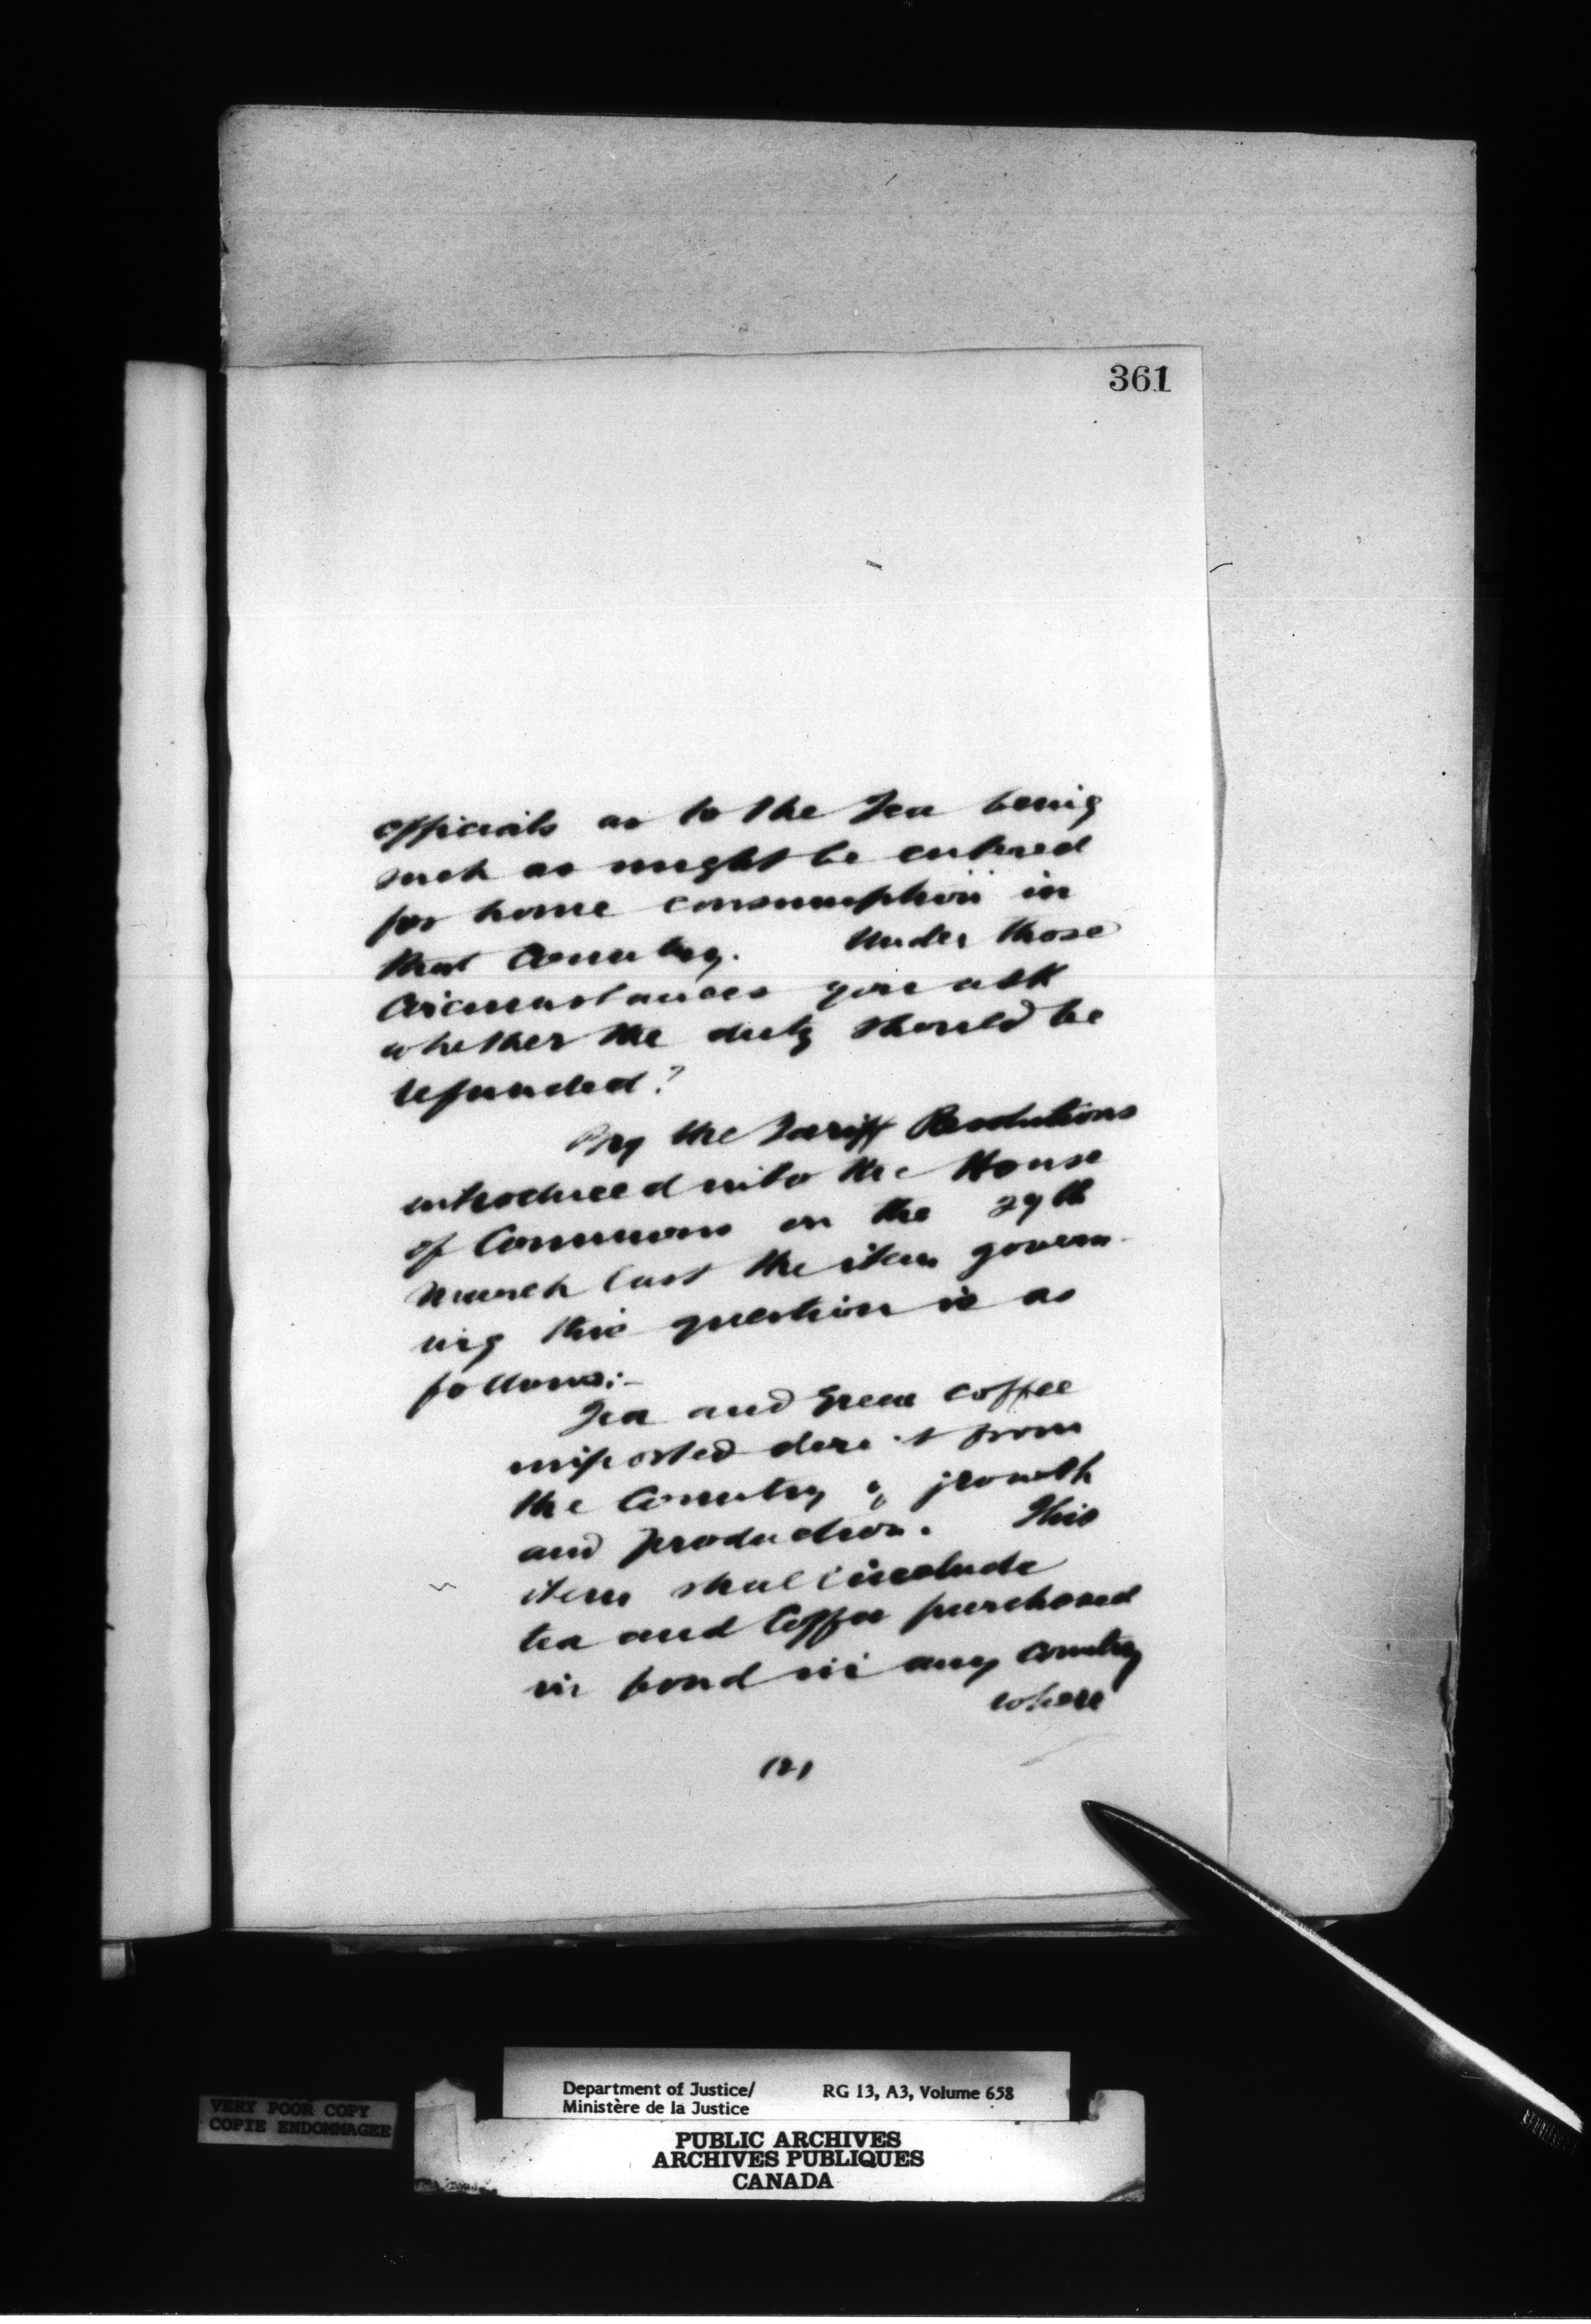 361
officials as to the Tea being
such as might be entered
for home consumption in
that Country. Under those
Circumstances you ask
whether the duty should be
refunded?
By the Tariff Resolutions
introduced into the House
of Commons on the 29th
March last the item govern-
ing this question is as
follows:-
Tea and Green coffee
imported direct from
the Country of growth
and production. This
item shall include
tea and Coffee purchased
in bond in any country
where
(2)
Department of Justice/ RG 13, A3, Volume 658
Ministère de la Justice
VERY POOR COPY
COPIE ENDOMMAGEE
PUBLIC ARCHIVES
ARCHIVES PUBLIQUES
CANADA